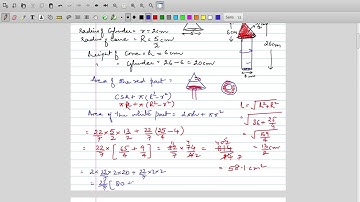 Radius of Cylinder = r = 2cm
Radius of Cone = R = 5/2 cm
height of Cone = h = 6cm
" " Cylinder = 26-6 = 20cm
6cm
26cm
Area of the red part =
CSA + π(R²-r²)
πRl + π(R²-r²)
Area of the white part = 2πrh + πr²
l = √h²+R²
= √36+25/4
= 22/7 × 5/2 × 13/2 + 22/7 (25/4 - 4)
= 22/7 × [65/4 + 9/4] = 22/7 × 74/4 =
= 13/2 cm
= 58.1 cm²
= 2×22/7×2×20 + 22/7×2×2
= 22/7 [80 +